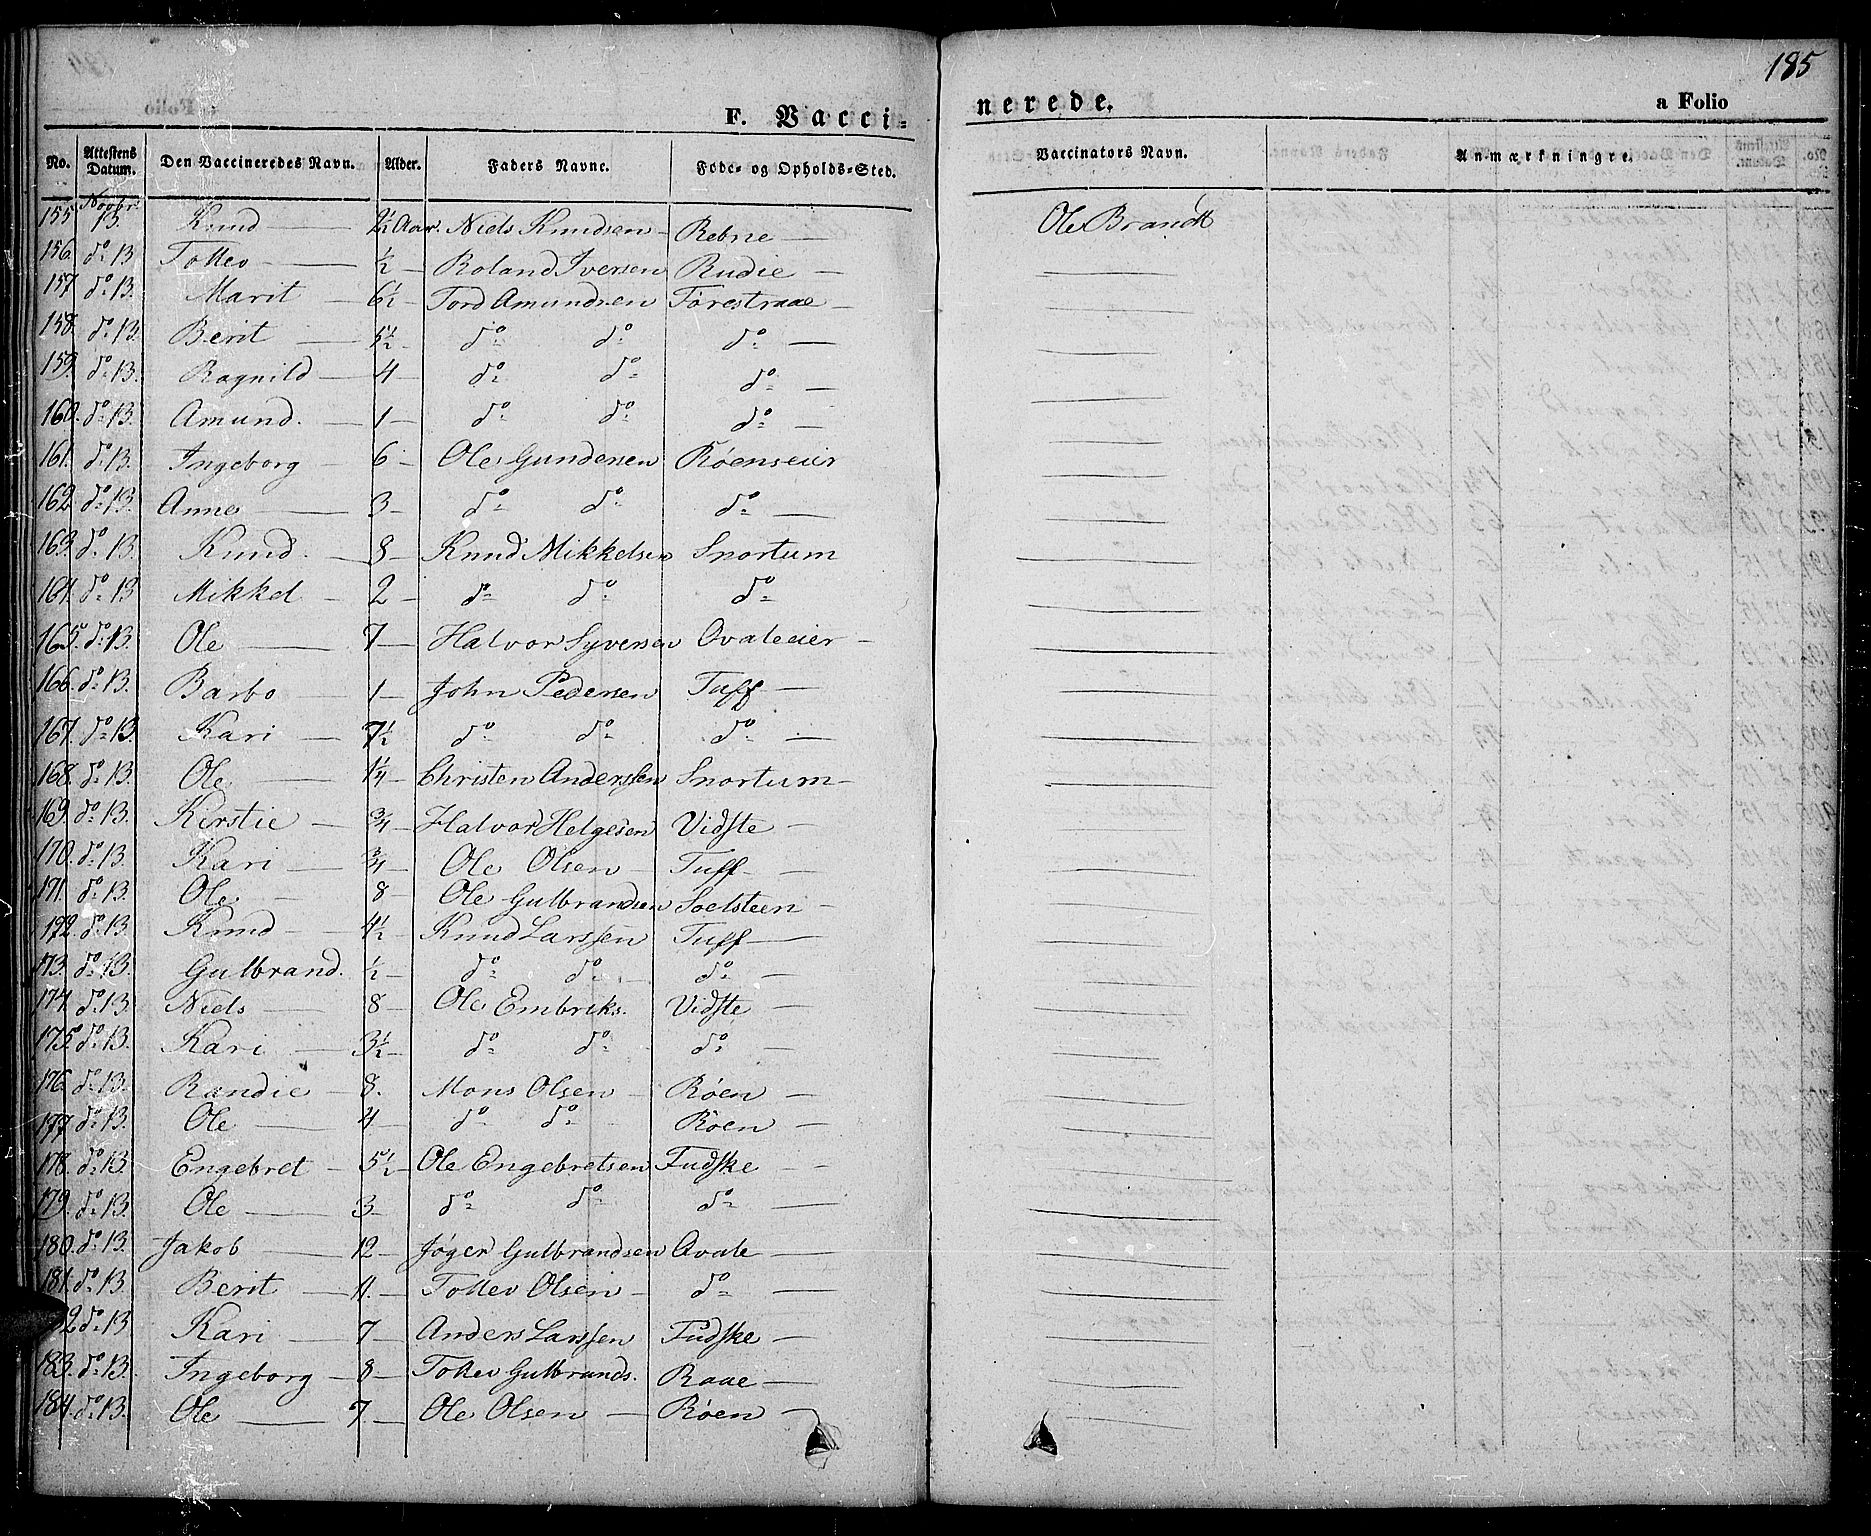 185
F. Vacci= nerede. a Folio
No. Attestens Datum. Den Vaccineredes Navn. Alder. Faders Navne. Føde- og Opholds-Sted. Vaccinators Navn. Anmærkningre.
Novbr
155 13. Knud — 2½ Aar. Niels Knudsen — Rebne — Ole Brandt
156. do 13 Tollev — ½ — Roland Iversen Rudie —
157 do 13. Marit — 6½ — Tord Amundsen Førestraae —
158. do 13. Berit — 5½ — do do do —
159. do 13. Ragnild — 4 — do do do —
160. do 13. Amund. — 1 — do do do —
161. do 13. Ingeborg — 6 — Ole Gundersen Røenseier
162 do 13. Anne — 3 — do do do —
163. do 13. Knud. — 8 — Knud Mikkelsen Snortum
164. do 13 Mikkel — 2 — do do do
165. do 13. Ole — 7 — Halvor Syversen Ovaleeier —
166. do 13. Barbo — 1 — John Pedersen Tuff —
167. do 13. Kari — 7½ do do do —
168. do 13. Ole — 1¼ — Christen Anderssen Snortum —
169. do 13. Kirstie — ¾ — Halvor Helgesen Vidste —
170. do 13. Kari — ¾ Ole Olsen — Tuff —
171. do 13. Ole — 8 — Ole Gulbrandsen Soelsteen —
172. do 13. Knud — 4½ — Knud Larssen Tuff —
173. do 13. Gulbrand. ½ — do do do —
174. do 13. Niels — 8 — Ole Embriks. Vidste —
175. do 13. Kari — 3½ — do do do —
176. do 13. Randie — 8. Mons Olsen — Røen —
177. do 13. Ole — 4 — do do Røen —
178. do 13. Engebret — 5½ — Ole Engebretsen Fudske —
179. do 13. Ole — 3 — do do do —
180. do 13. Jakob — 12 — Jøger Gulbrandsen Ovale —
181. do 13 Berit — 11. — Tollev Olsen — do —
82 do 13 Kari — 7 — Anders Larssen Fudske —
183. do 13. Ingeborg — 8 — Tollev Gulbrands. Raae —
184. do 13. Ole — 7. — Ole Olsen — Røen —